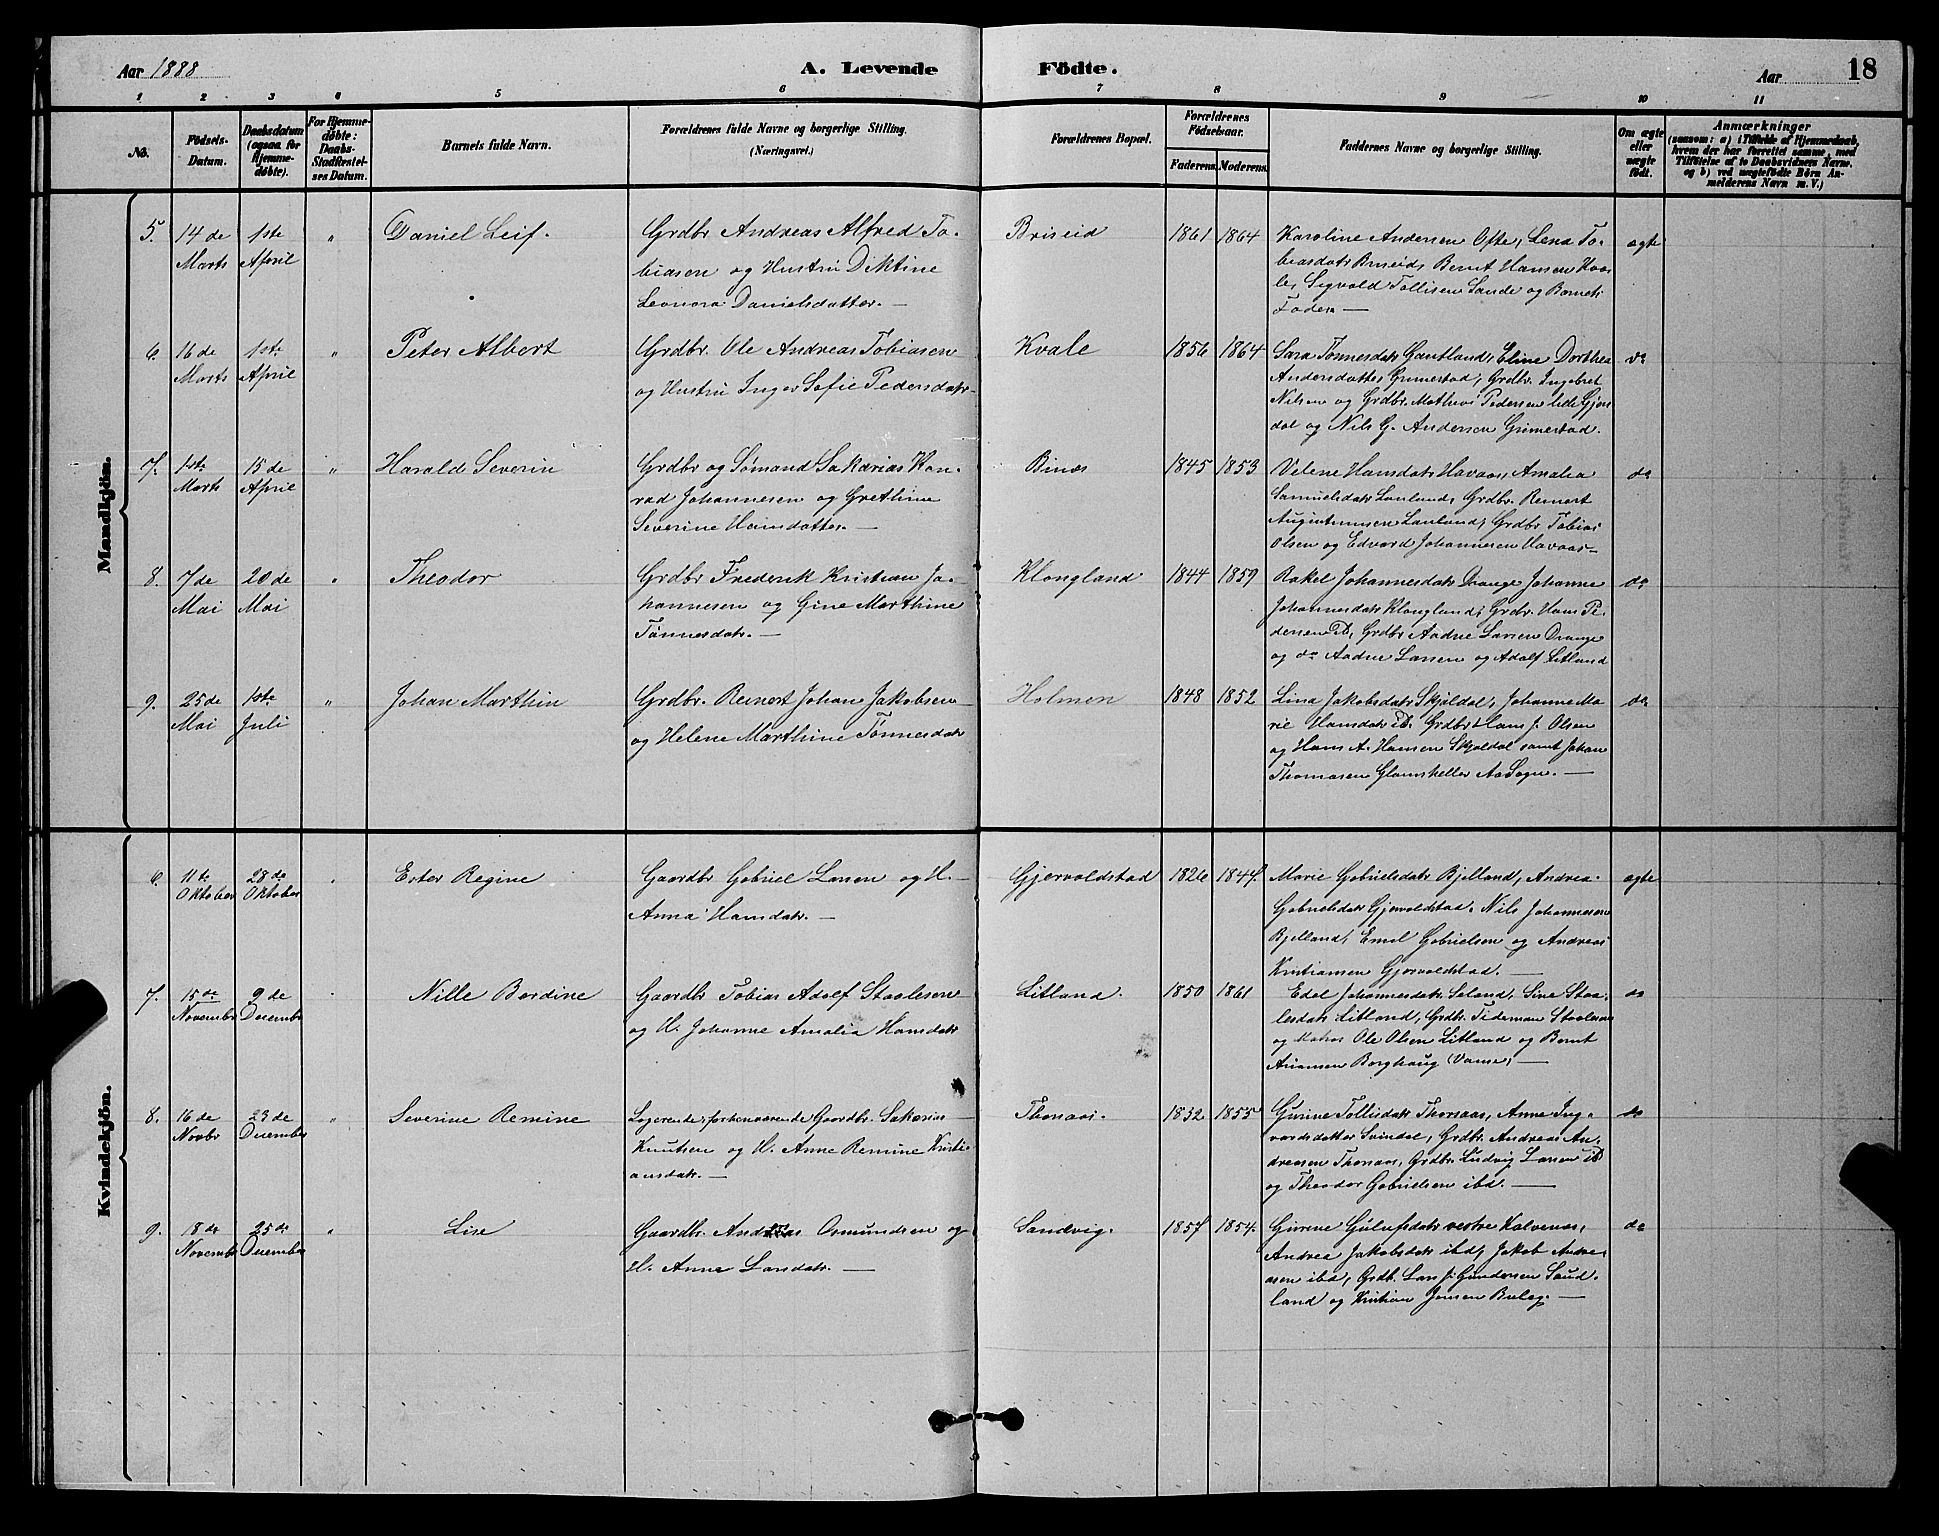 Aar 1888
A. Levende Födte.
Aar
18
1 2 3 4 5 6 7 8 9 10 11
No.
Födsels-Datum.
Daabsdatum (ogsaa for Hjemme-døbte).
For Hjemme-døbte: Daabs-Stadfæstel-ses Datum.
Barnets fulde Navn.
Forældrenes fulde Navne og borgerlige Stilling. (Næringsvei.)
Forældrenes Bopæl.
Forældrenes Födselsaar.
Faderens. Moderens.
Faddernes Navne og borgerlige Stilling.
Om ægte eller uægte født.
Anmærkninger
(saasom: a) i Tilfælde af Hjemmedaab,
hvem der har forrettet samme, med
Tilföielse af to Daabsvidners Navne,
og b) ved uægtefödte Börn An-
melderens Navn m. V.)
Mandkjön.
5. 14de Marts 1ste April " Daniel Leif.
Grdbr Andreas Alfred To-
biasen og Hustru Diktine
Leonora Danielsdatter. —
Briseid 1861 1864
Karoline Andersen Ofte, Lena To-
biasdatr Briseid, Bernt Hansen Kva
le, Sigvald Tollisen Sande og Barnets
Fader —
ægte
6 16de Marts 1ste April " Peter Albert
Grdbr. Ole Andreas Tobiasen
og Hustru Inger Sofie Pedersdatr-
Kvale 1856 1864
Sara Tønnesdatr Gautland, Eline Dorthea
Andersdatter Grimestad, Grdbr. Ingebret
Nilsen og Grdbr. Mathias Pedersen
dal og Nils G. Andersen Grimestad.
do
7. 1ste Marts 15de April " Harald Severin
Grdbr og Sømand Sakarias Kon-
rad Johannesen og Grethine
Severine Hansdatter. —
Bines 1845 1853
Velene Hansdatr Havaas, Amalia
Samuelsdatr Lauland, Grdbr. Reinert
Augustinusen Lauland, Grdbr Tobias
Olsen og Edvard Johannesen Havaas—
do
8. 7de Mai 20de Mai " Theodor
Grdbr Frederik Kristian Jo-
hannesen og Gine Marthine
Tønnesdatr. —
Klongland 1844 1859
Rakel Johannesdatr Drange Johanne
Johannesdatr Klongland, Grdbr. Hans Pe-
dersen ib, Grdbr Aadne Larsen Drange
og do Aadne Larsen og Adolf Litland
do
9. 25de Mai 1ste Juli " Johan Marthin
Grdbr. Reinert Johan Jakobsen
og Helene Marthine Tønnesdatr
Holmen 1848 1852
Lina Jakobsdatr Skjøldal, Johanne Ma-
rie Hansdatr ib. Grdbr Hans J. Olsen
og Hans A. Hansen Skjøldal samt Johan
Thomasen Glamsheller Aa Sogn. —
do
Kvindekjön.
6. 11te Oktober 28de Oktober " Ester Regine
Gaardbr Gabriel Larsen og H. —
Anna Hansdatr. —
Gjervoldstad 1826 1844.
Marie Gabrielsdatr Bjelland, Andrea
Gabrielsdatr Gjervoldstad. Nils Johannesen
Bjelland, Emil Gabrielsen og Andreas
Kristiansen Gjervoldstad. —
ægte
7. 15de November 9de December Nille Bardine
Gaardbr Tobias Adolf Staalesen
og H. Johanne Amalia Hansdatr
Litland. 1850 1861
Edel Johannesdatr Seland, Sine Staa-
lesdatr Litland, Grdbr. Tideman Staalesen
og Ole Olsen Litland og Bernt
Arjansen Borghaug (Vanse) —
do
8. 16de Novbr 23de December " Severine Remine
Logerende, forhenværende Gaardbr. Sakarias —
Knutsen og H. Anne Remine Kristi-
ansdatr. —
Thonaas. 1832 1855
Gurine Tollisdatr Thonaas, Anne Ing-
vardsdatter Svindal, Grdbr. Andreas An-
dreasen Thonaas, Grdbr. Ludvig Larsen ib
og Theodor Gabrielsen ibd. —
do
9. 18de November 25de December " Lise
Gaardbr. Andreas Osmundsen og
H. Anne Larsdatr. —
Sandvig. 1857 1854.
Gurine Gulufsdatr vestre Kalvenes,
Andrea Jakobsdatr ibd, Jakob Andre-
asen ibd, Grdb. Lars J. Gundersen Saud-
land og Kristian Jensen Buleg. —
do